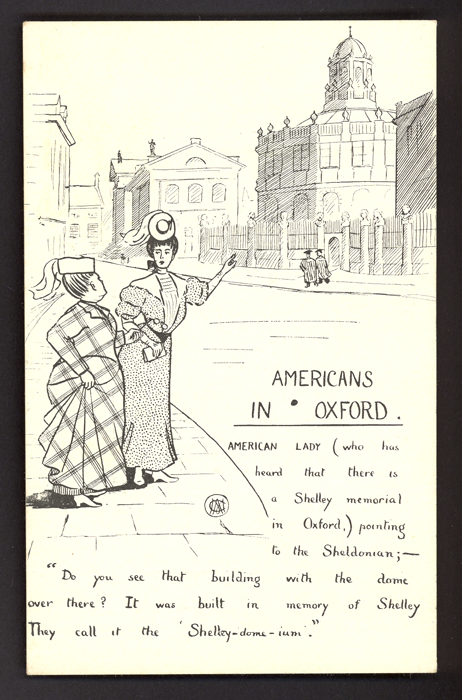 AMERICANS
IN • OXFORD.
AMERICAN LADY (who has
heard that there is
a Shelley memorial
in Oxford,) pointing
to the Sheldonian;—
"Do you see that building with the dome
over there? It was built in memory of Shelley
They call it the 'Shelley-dome-ium'."